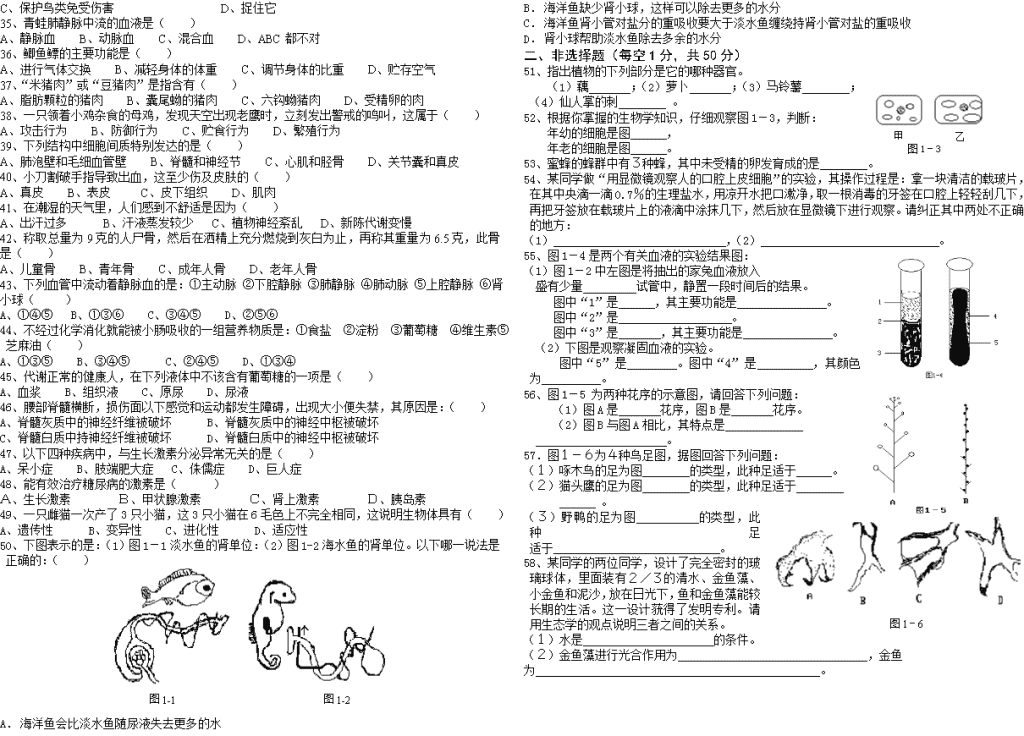 C、保护鸟类免受伤害 D、捉住它
35、青蛙肺静脉中流的血液是( )
A、静脉血 B、动脉血 C、混合血 D、ABC 都不对
36、鲫鱼鳔的主要功能是( )
A、进行气体交换 B、减轻身体的体重 C、调节身体的比重 D、贮存空气
37、“米猪肉”或“豆猪肉”是指含有( )
A、脂肪颗粒的猪肉 B、囊尾蚴的猪肉 C、六钩蚴猪肉 D、受精卵的肉
38、一只领着小鸡杂食的母鸡，发现天空出现老鹰时，立刻发出警戒的鸣叫，这属于( )
A、攻击行为 B、防御行为 C、贮食行为 D、繁殖行为
39、下列结构中细胞间质特别发达的是( )
A、肺泡壁和毛细血管壁 B、脊髓和神经节 C、心肌和胫骨 D、关节囊和真皮
40、小刀割破手指导致出血，这至少伤及皮肤的( )
A、真皮 B、表皮 C、皮下组织 D、肌肉
41、在潮湿的天气里，人们感到不舒适是因为( )
A、出汗过多 B、汗液蒸发较少 C、植物神经紊乱 D、新陈代谢变慢
42、称取总量为 9克的人尸骨，然后在酒精上充分燃烧到灰白为止，再称其重量为 6.5 克，此骨
是( )
A、儿童骨 B、青年骨 C、成年人骨 D、老年人骨
43、下列血管中流动着静脉血的是：①主动脉 ②下腔静脉 ③肺静脉 ④肺动脉 ⑤上腔静脉 ⑥肾
小球( )
A、①④⑤ B、①③⑥ C、③④⑤ D、②⑤⑥
44、不经过化学消化就能被小肠吸收的一组营养物质是：①食盐 ②淀粉 ③葡萄糖 ④维生素⑤
芝麻油( )
A、①③⑤ B、③④⑤ C、②④⑤ D、①③④
45、代谢正常的健康人，在下列液体中不该含有葡萄糖的一项是( )
A、血浆 B、组织液 C、原尿 D、尿液
46、腰部脊髓横断，损伤面以下感觉和运动都发生障碍，出现大小便失禁，其原因是：( )
A、脊髓灰质中的神经纤维被破坏 B、脊髓灰质中的神经中枢被破坏
C、脊髓白质中持神经纤维被破坏 D、脊髓白质中的神经中枢被破坏
47、以下四种疾病中，与生长激素分泌异常无关的是( )
A、呆小症 B、肢端肥大症 C、侏儒症 D、巨人症
48、能有效治疗糖尿病的激素是( )
A、生长激素 B、甲状腺激素 C、肾上激素 D、胰岛素
49、一只雌猫一次产了3只小猫，这3只小猫在6毛色上不完全相同，这说明生物体具有( )
A、遗传性 B、变异性 C、进化性 D、适应性
50、下图表示的是：(1)图1－1淡水鱼的肾单位：(2)图1-2海水鱼的肾单位。以下哪一说法是
正确的：( )
图1-1 图1-2
A. 海洋鱼会比淡水鱼随尿液失去更多的水
B. 海洋鱼缺少肾小球，这样可以除去更多的水分
C. 海洋鱼肾小管对盐分的重吸收要大于淡水鱼缠绕持肾小管对盐的重吸收
D. 肾小球帮助淡水鱼除去多余的水分
二、非选择题（每空1分，共50分）
51、指出植物的下列部分是它的哪种器官。
(1)藕______；(2)萝卜______；(3)马铃薯______；
(4)仙人掌的刺______ 。
52、根据你掌握的生物学知识，仔细观察图1－3，判断：
年幼的细胞是图_____，
年老的细胞是图_____。
甲 乙
图1－3
53、蜜蜂的蜂群中有3种蜂，其中未受精的卵发育成的是______。
54、某同学做“用显微镜观察人的口腔上皮细胞”的实验，其操作过程是：拿一块清洁的载玻片，
在其中央滴一滴0.7%的生理盐水，用凉开水把口漱净，取一根消毒的牙签在口腔上轻轻刮几下，
再把牙签放在载玻片上的液滴中涂抹几下，然后放在显微镜下进行观察。请纠正其中两处不正确
的地方：
(1)______________________，(2)______________________。
55、图1－4是两个有关血液的实验结果图：
(1)图1－2中左图是将抽出的家兔血液放入
盛有少量_______试管中，静置一段时间后的结果。
图中“1”是_____，其主要功能是___________。
图中“2”是______________。
图中“3”是_____，其主要功能是___________。
(2)下图是观察凝固血液的实验。
图中“5”是______。图中“4”是_______，其颜色
为________。
1
2
3
4
5
图1-4
56、图1－5 为两种花序的示意图，请回答下列问题：
(1)图A是_____花序，图B是_____花序。
(2)图B与图A相比，其特点是__________
____________________。
A B
图1－5
57．图1－6为4种鸟足图，据图回答下列问题：
(1)啄木鸟的足为图______的类型，此种足适于_____。
(2)猫头鹰的足为图______的类型，此种足适于______
________ 。
(3)野鸭的足为图________的类型，此
种 足
适于______________________。
A B C D
图1－6
58、某同学的两位同学，设计了完全密封的玻
璃球体，里面装有2／3的清水、金鱼藻、
小金鱼和泥沙，放在日光下，鱼和金鱼藻能较
长期的生活。这一设计荻得了发明专利。请
用生态学的观点说明三者之间的关系。
(1)水是_________________的条件。
(2)金鱼藻进行光合作用为________________________，金鱼
为____________________________________。